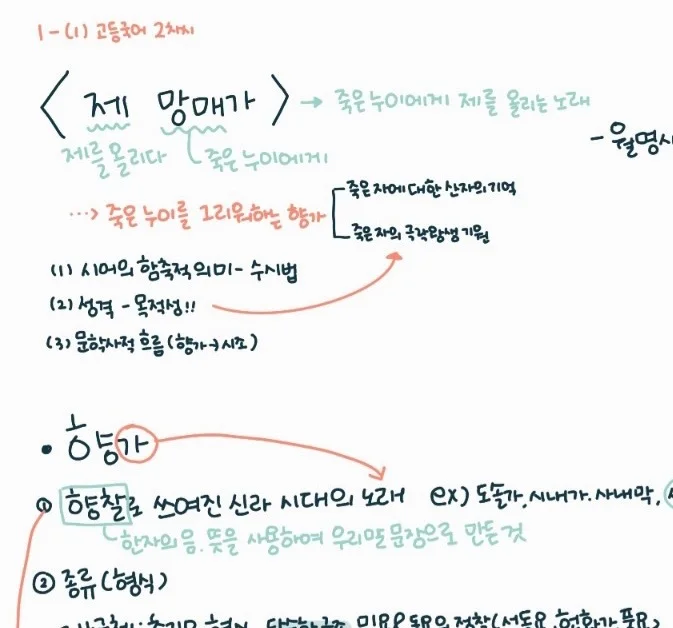 1-(1) 고등국어 2차시
< 제 망매가 > → 죽은 누이에게 제를 올리는 노래
- 월명사
제를 올리다 죽은 누이에게
···> 죽은 누이를 그리워하는 향가
죽은 자에 대한 산자의 기억
죽은 자의 극락왕생 기원
(1) 시어의 함축적 의미 - 수사법
(2) 성격 - 목적성!!
(3) 문학사적 흐름 (향가→시조)
• 향가
① 향찰로 쓰여진 신라 시대의 노래 ex) 도솔가, 시내가, 사내악,
한자의 음, 뜻을 사용하여 우리말 문장으로 만든 것
② 종류 (형식)